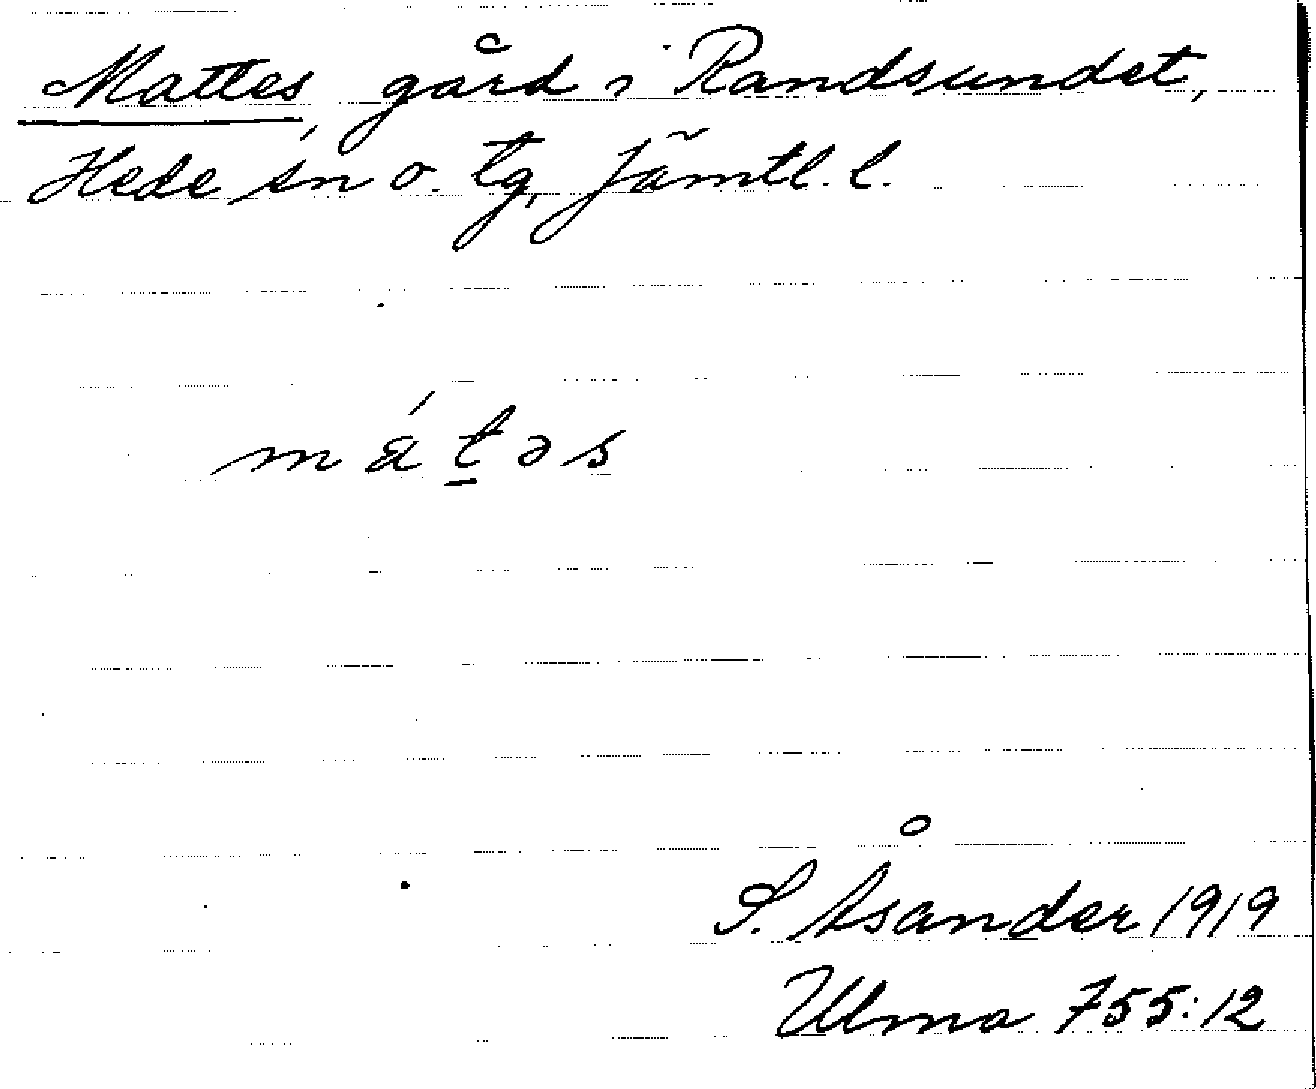 Mattes, gård i Randsundet,
Hede sn o. tg, Jämtl. l.
mátəs
S. Åsander 1919
Ulma 755:12